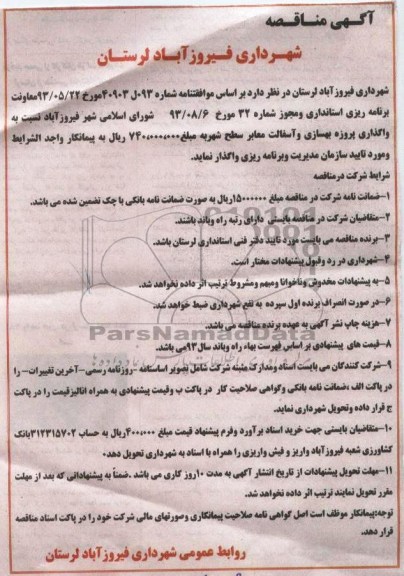 آگهی مناقصه
شهرداری فیروزآباد لرستان
شهرداری فیروزآباد لرستان در نظر دارد بر اساس موافقتنامه شماره ۰۹۳ل۴۰۹۰۳مورخ ۹۳/۰۵/۲۲معاونت
برنامه ریزی استانداری ومجوز شماره ۳۲ مورخ ۹۳/۰۸/۶ شورای اسلامی شهر فیروزآباد نسبت به
واگذاری پروژه بهسازی وآسفالت معابر سطح شهربه مبلغ۷۴۰،۰۰۰،۰۰۰ ریال به پیمانکار واجد الشرایط
ومورد تایید سازمان مدیریت وبرنامه ریزی واگذار نماید.
شرایط شرکت درمناقصه
۱-ضمانت نامه شرکت در مناقصه مبلغ ۱۵۰۰۰۰۰۰ریال به صورت ضمانت نامه بانکی یا چک تضمین شده می باشد.
۲-متقاضیان شرکت در مناقصه بایستی دارای رتبه راه وباند باشند.
۳-برنده مناقصه می بایست مورد تایید دفتر فنی استانداری لرستان باشد.
۴-شهرداری در رد وقبول پیشنهادات مختار است.
۵-به پیشنهادات مخدوش وناخوانا ومبهم ومشروط ترتیب اثر داده نخواهد شد.
۶-در صورت انصراف برنده اول سپرده به نفع شهرداری ضبط خواهد شد.
۷-هزینه چاپ نشر آگهی به عهده برنده مناقصه می باشد.
۸-قیمت های پیشنهادی بر اساس فهرست بهاء راه وباند سال۹۳می باشد.
۹-شرکت کنندگان می بایست اسناد ومدارک مثبته شرکت شامل تصویر اساسنامه -روزنامه رسمی-آخرین تغییرات- را
در پاکت الف ،ضمانت نامه بانکی وگواهی صلاحیت کار در پاکت ب وقیمت پیشنهادی به همراه انالیزقیمت را در پاکت
ج قرار داده وتحویل شهرداری نماید.
۱۰-متقاضیان بایستی جهت خرید اسناد برآورد وفرم پیشنهاد قیمت مبلغ ۴۰۰،۰۰۰ریال به حساب ۳۱۲۳۱۵۷۰۲بانک
کشاورزی شعبه فیروزآباد واریز و فیش واریزی را همراه با اسناد به شهرداری تحویل دهد.
۱۱-مهلت تحویل پیشنهادات از تاریخ انتشار آگهی به مدت ۱۰روز کاری می باشد .ضمناً به پیشنهاداتی که بعد از مهلت
مقرر تحویل نمایند ترتیب اثر داده نخواهد شد.
توجه:پیمانکار موظف است اصل گواهی نامه صلاحیت پیمانکاری وصورتهای مالی شرکت خود را در پاکت اسناد مناقصه
قرار دهد.
روابط عمومی شهرداری فیروزآباد لرستان
ParsNamadData